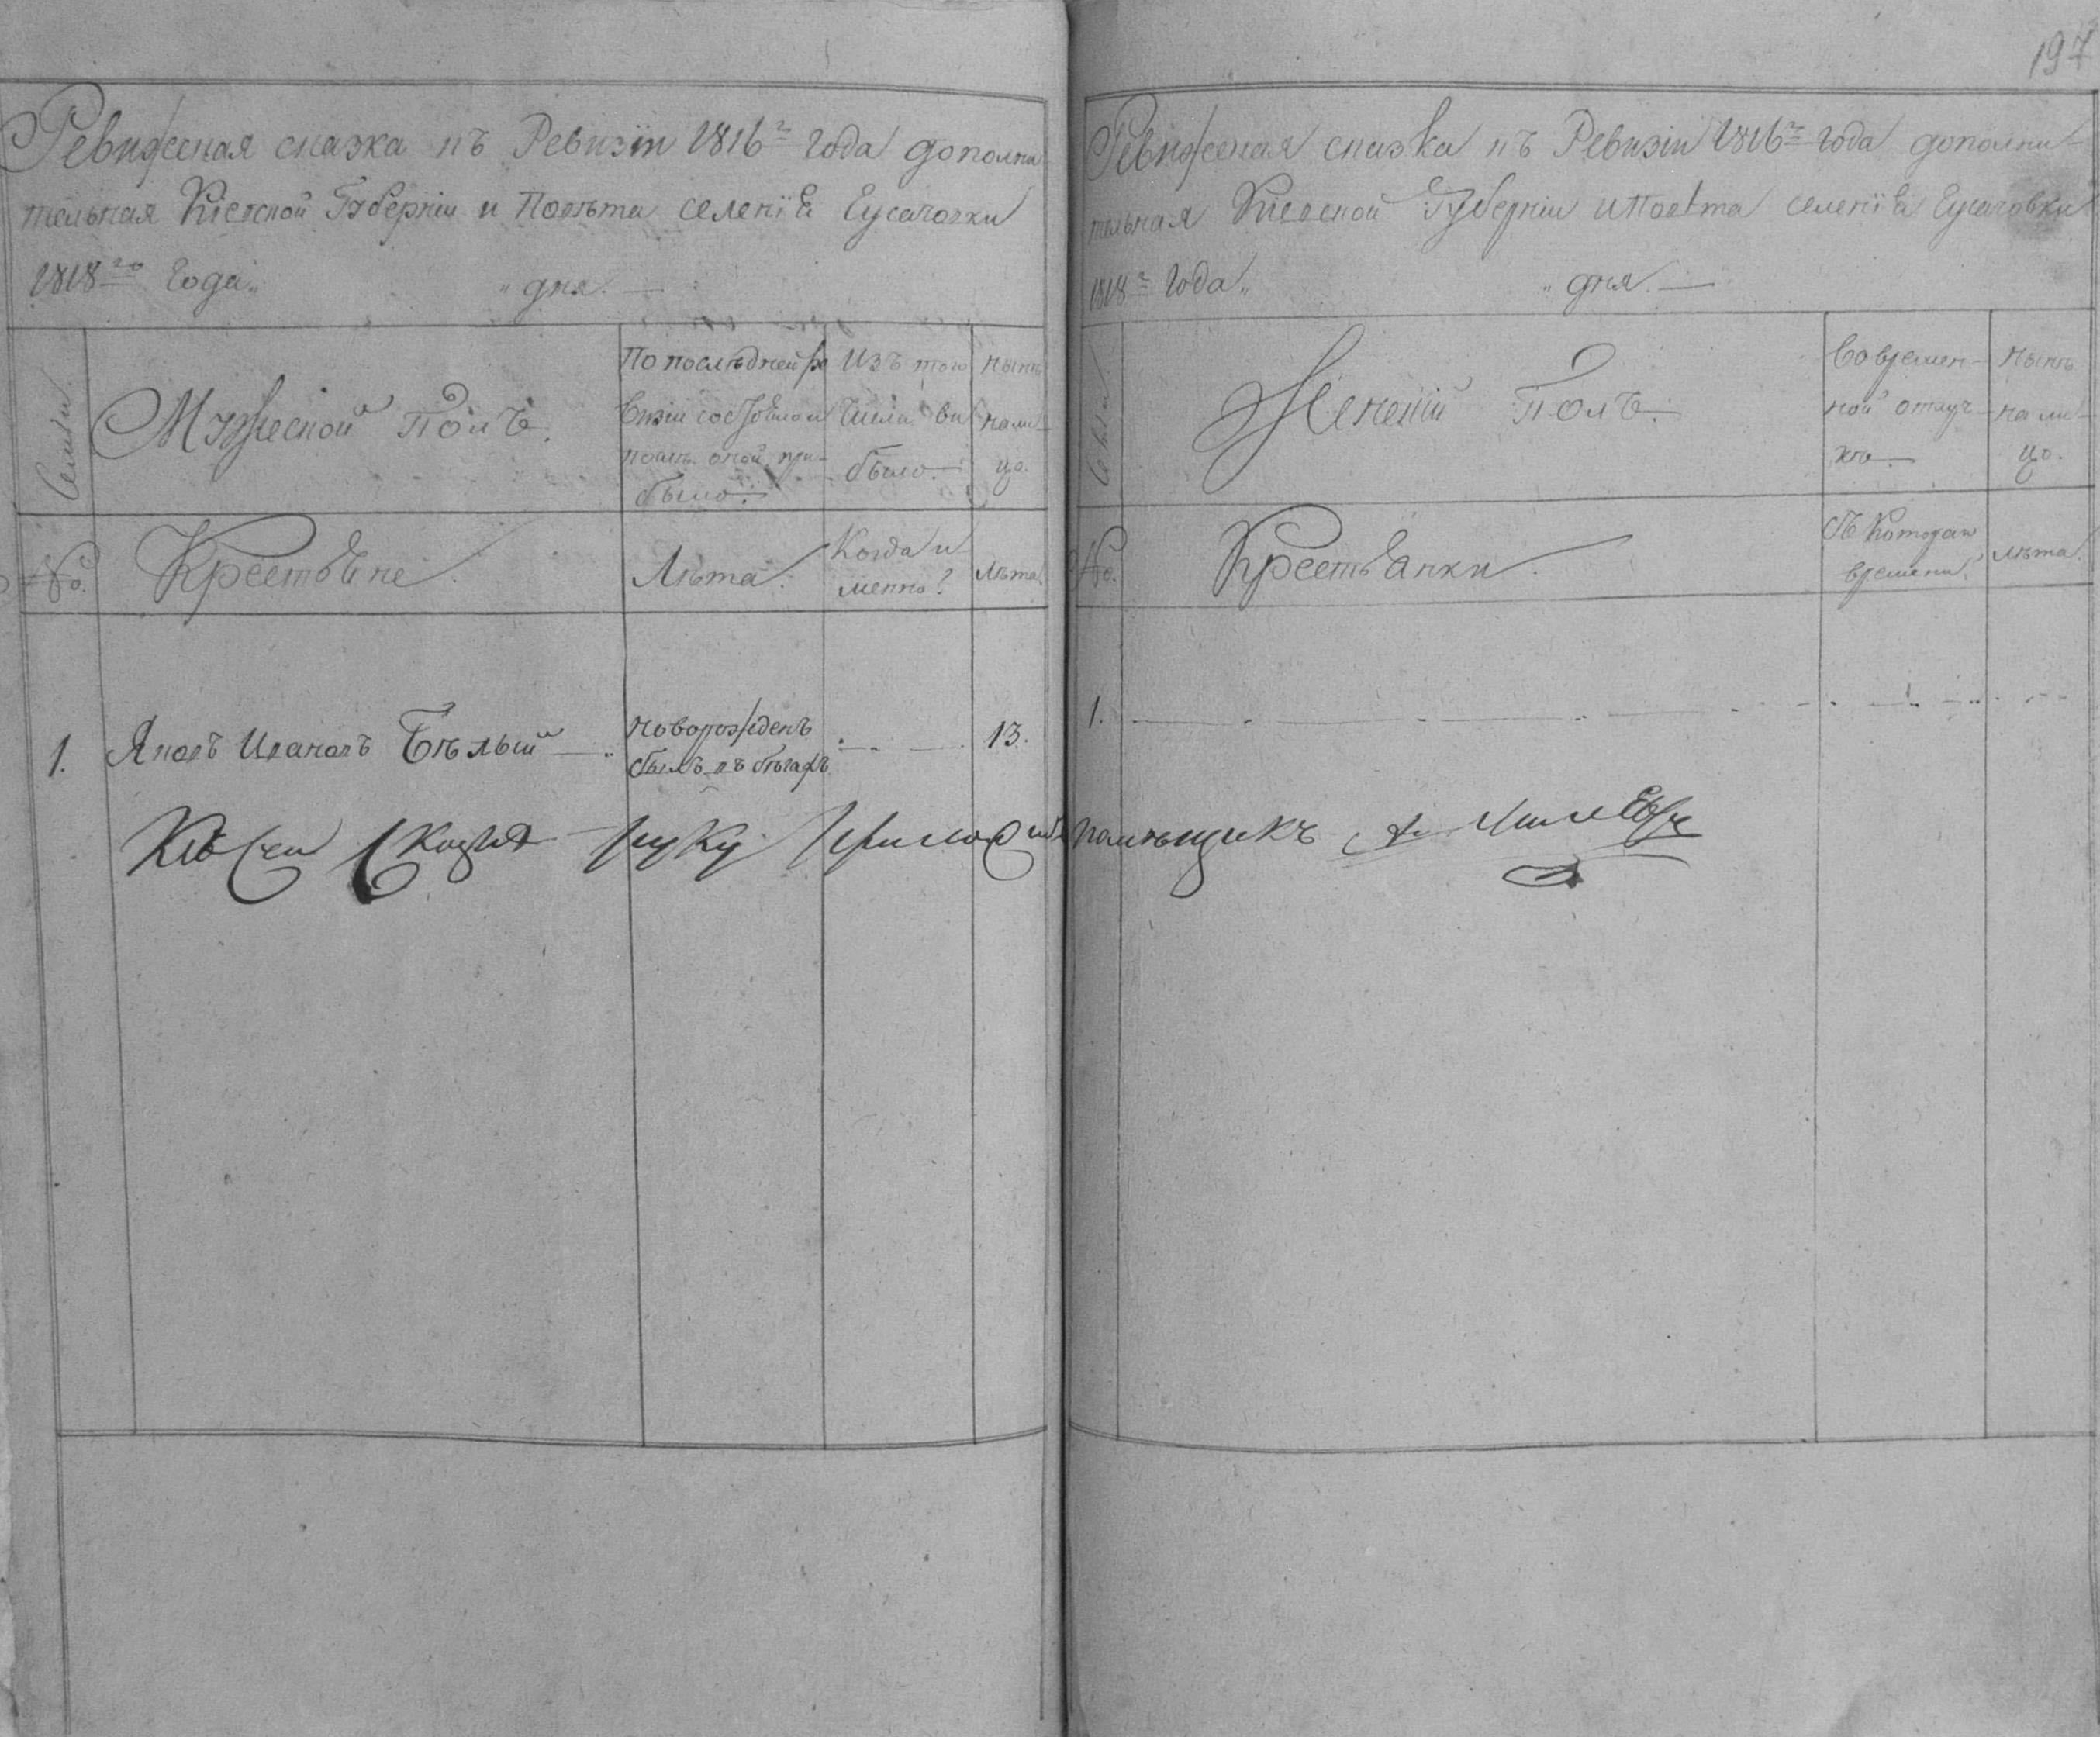 197
Ревижсская сказка къ Ревизіи 1816г года дополни
тельная Кіевской Губерніи и Повѣта селенія Гусачовки
1818го года „ „ дня. —
Семьи
Мужеской Полъ.
По послѣдней ре
визіи состояло и
послѣ оной при-
было.
Изъ того
числа вы
было.
Нынѣ
нали
цо.
№.
Крестьяне.
Лѣта.
Когда и
менно?
Лѣта.
1. Яковъ Ивановъ Бѣлый —
Новорожденъ
былъ въ бѣгахъ
13.
Къ сей Скаски руку приложилъ
Ревижсская сказка къ Ревизіи 1816г года дополни-
тельная Кіевской Губерніи и Повѣта селенія Гусачовки
1818г года „ „ дня. —
Семьи
Женскій Полъ.
Во времен-
ной отлуч-
кѣ.
Нынѣ
нали-
цо.
№.
Крестьянки.
Съ котораго
времени?
Лѣта.
1.
помѣщикъ